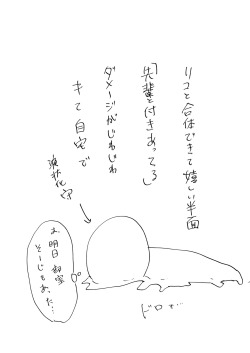 リコと合体できて嬉しい半面
「先輩と付きあってる」
ダメージがじわじわ
キて自宅で
液状化
あ、明日
そーじしなきゃ…
ドロォ…